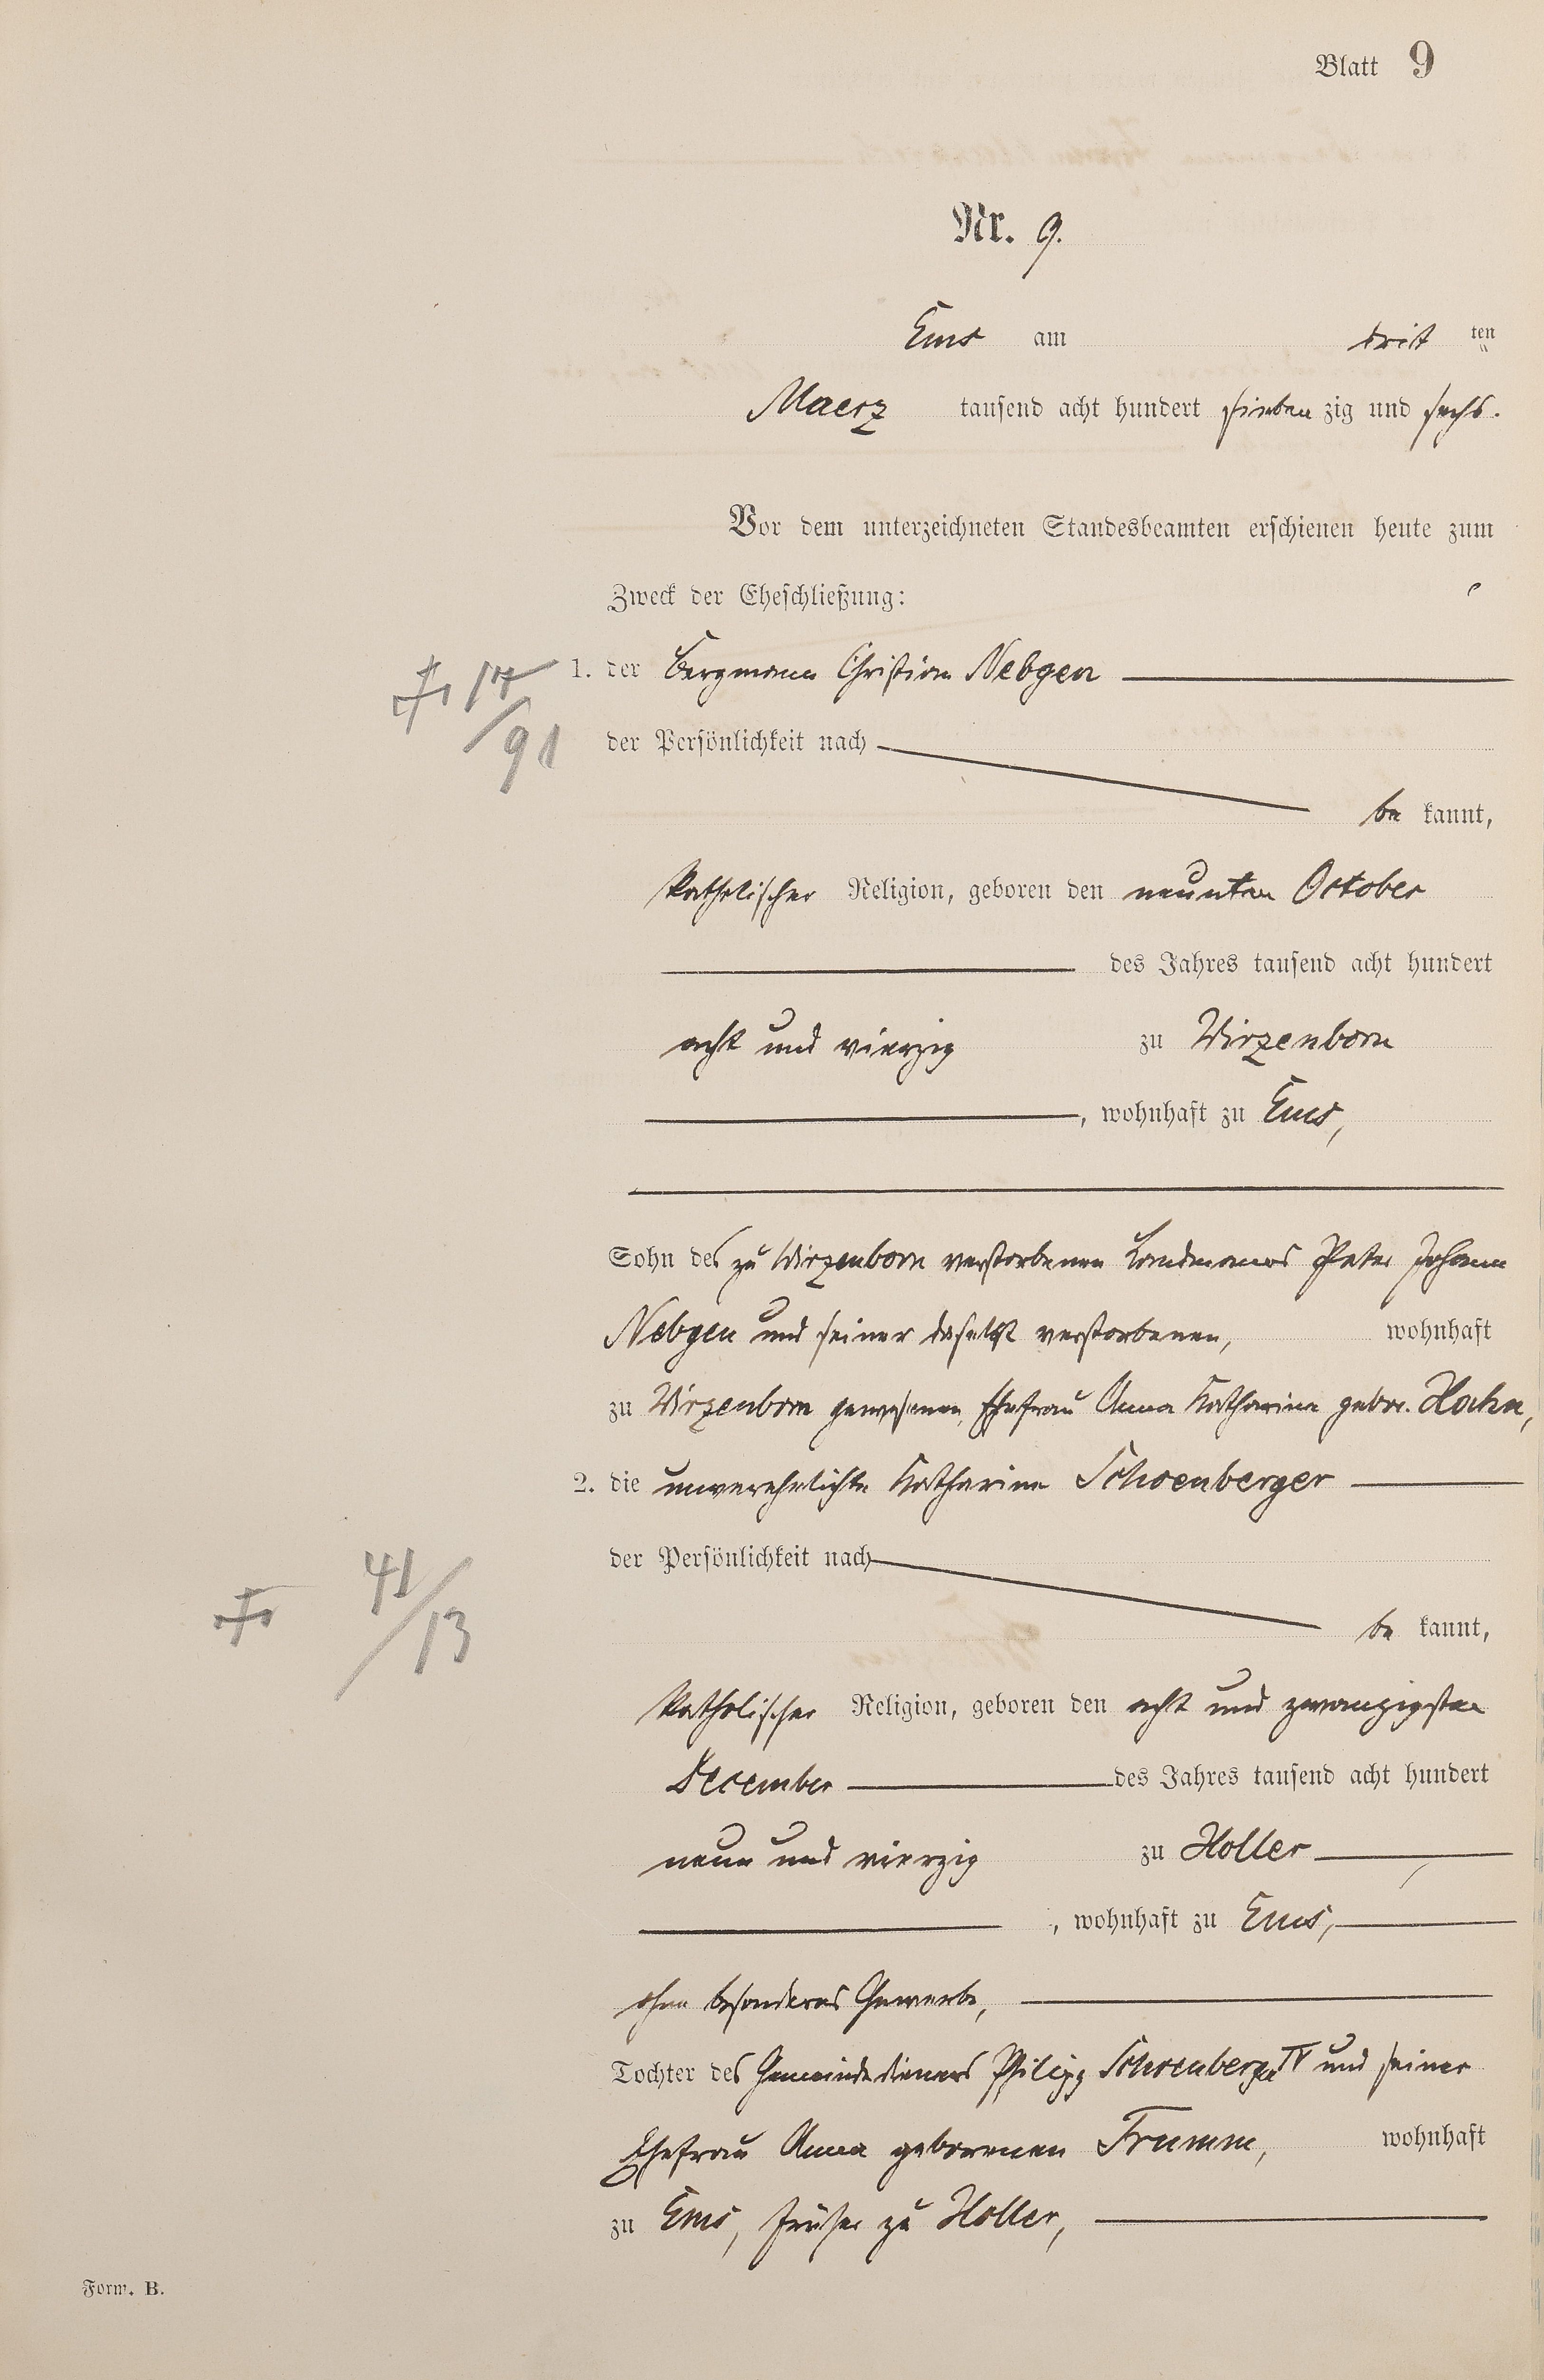 Blatt 9
Nr. 9.
Ems am drit ten
Maerz tausend acht hundert sieben zig und sechs.
Vor dem unterzeichneten Standesbeamten erschienen heute zum
Zweck der Eheschließung:
1. der Bergmann Christian Nebgen
17/91
der Persönlichkeit nach
be kannt,
katholischer Religion, geboren den neunten October
des Jahres tausend acht hundert
acht und vierzig zu Wirzenborn
, wohnhaft zu Ems,
Sohn des zu Wirzenborn verstorbenen Landmanns Peter Johann
Nebgen und seiner daselbst verstorbenen, wohnhaft
zu Wirzenborn gewesenen, Ehefrau Anna Katharina gebor. Hahn,
2. die unverehelichte Katharina Schoenberger
der Persönlichkeit nach
41/13
be kannt,
katholischer Religion, geboren den acht und zwanzigsten
December des Jahres tausend acht hundert
neun und vierzig zu Holler
, wohnhaft zu Ems,
ohne besonderes Gewerbe,
Tochter des Gemeindedieners Philipp Schoenberger IV und seiner
Ehefrau Anna geborenen Frumm, wohnhaft
zu Ems, früher zu Holler,
Form. B.